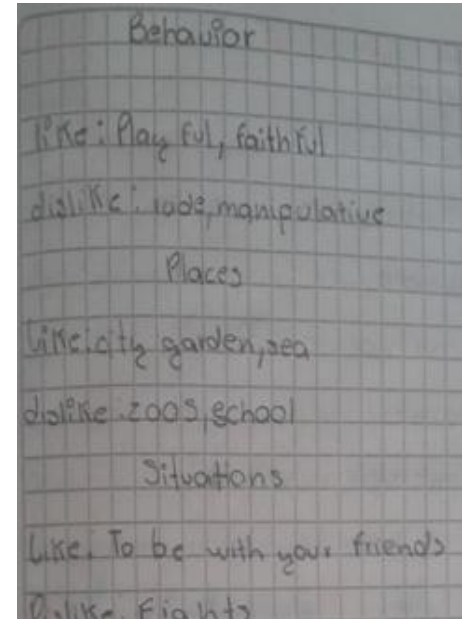 Behavior
like: Play ful, faithful
dislike: rode, manipulative
Places
Like: city garden, sea
dislike: zoos, school
Situations
Like: To be with your friends
Dislike: Fights